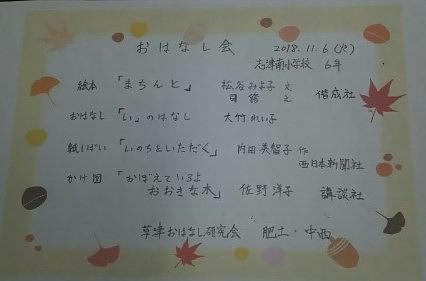 おはなし会 2018.11.6(火)
志津南小学校 6年
絵本 「まちんと」 松谷みよ子 文
司修 え 偕成社
おはなし 「い」のはなし 大竹れい子
紙しばい 「いのちをいただく」 内田美智子 作
西日本新聞社
かけ図 「おぼえているよ
おおきな木」 佐野洋子 講談社
草津おはなし研究会 肥土・中西